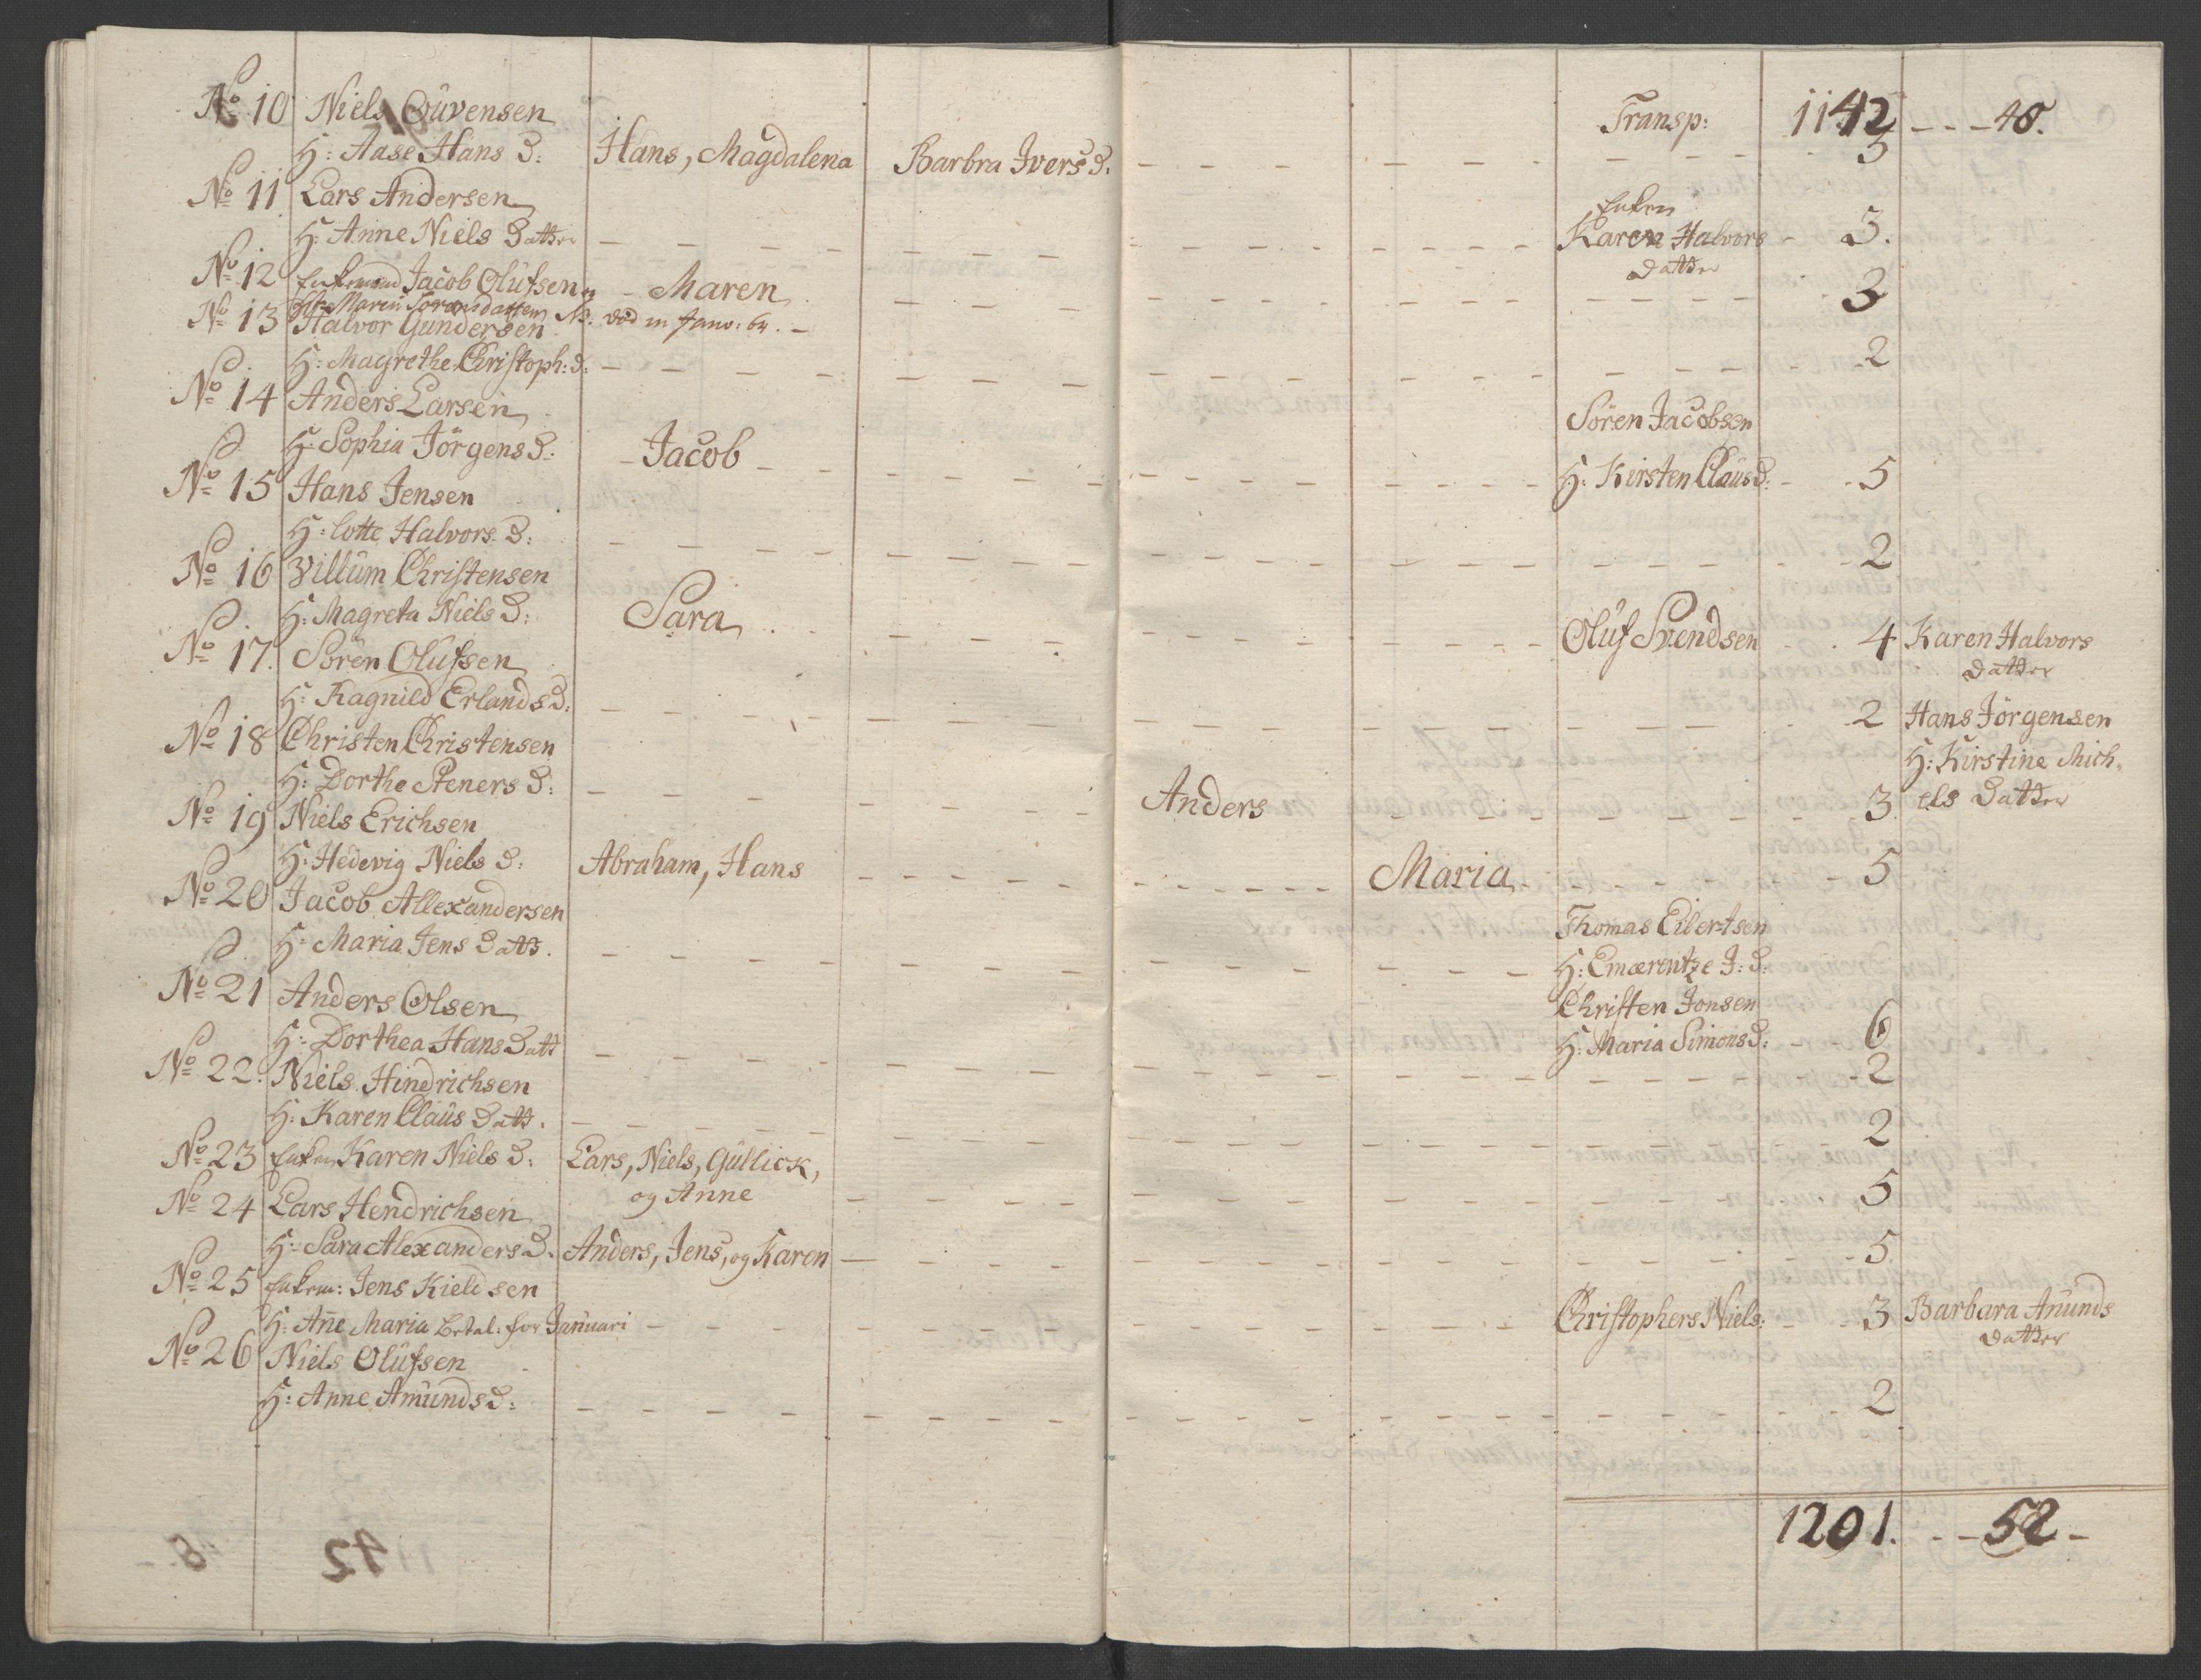 Transp: 1142 - - - 48.
No 10 Niels Ouvensen
H: Aase Hans D: Hans, Magdalena Barbra Ivers D. 5
No 11 Lars Andersen Enken
H: Anne Niels Datter Karen Halvors 3.
Datter
No 12 Enkemand Jacob Olufsen Maren 3
No 13 Halvor Gundersen
NB. død in Janv: 64.
H: Magrethe Christoph: D: 2
No 14 Anders Larsen Sören Jacobsen
H: Sophia Jörgens D: Jacob H: Kirsten Claus D: 5
No 15 Hans Jensen
H: Lotte Halvors D: 2
No 16 Villum Christensen
H: Magreta Niels D: Sara Oluf Svendsen 4 Karen Halvors
Datter
No 17. Sören Olufsen
H: Ragnild Erlands D: 2 Hans Jörgensen
No 18 Christen Christensen H: Kirstine Mich,
H: Dorthe Steners D: Anders 3. els Datter
No 19 Niels Erichsen
H: Hedevig Niels D: Abraham, Hans Maria 5
No 20 Jacob Allexandersen Thomas Eilertsen
H: Maria Jens Datt. H: Emærentze J: D:
No 21 Anders Olsen Christen Jonsen
H: Maria Simons D: 6
H: Dorthea Hans Datt 2
No 22. Niels Hindrichsen
H: Karen Claus Datt. 2
No 23 Enken Karen Niels D: Lars, Niels, Gullick,
og Anne 5
No 24 Lars Hendrichsen
H: Sara Alexanders D. Anders, Jens, og Karen 5.
No 25 Enkem: Jens Kieldsen
H: Anne Maria Betal: for Januari Christophers Niels: 3 Barbara Amunds
Datter
No 26 Niels Olufsen
H: Anne Amunds D: 2
1201. - - 52 -